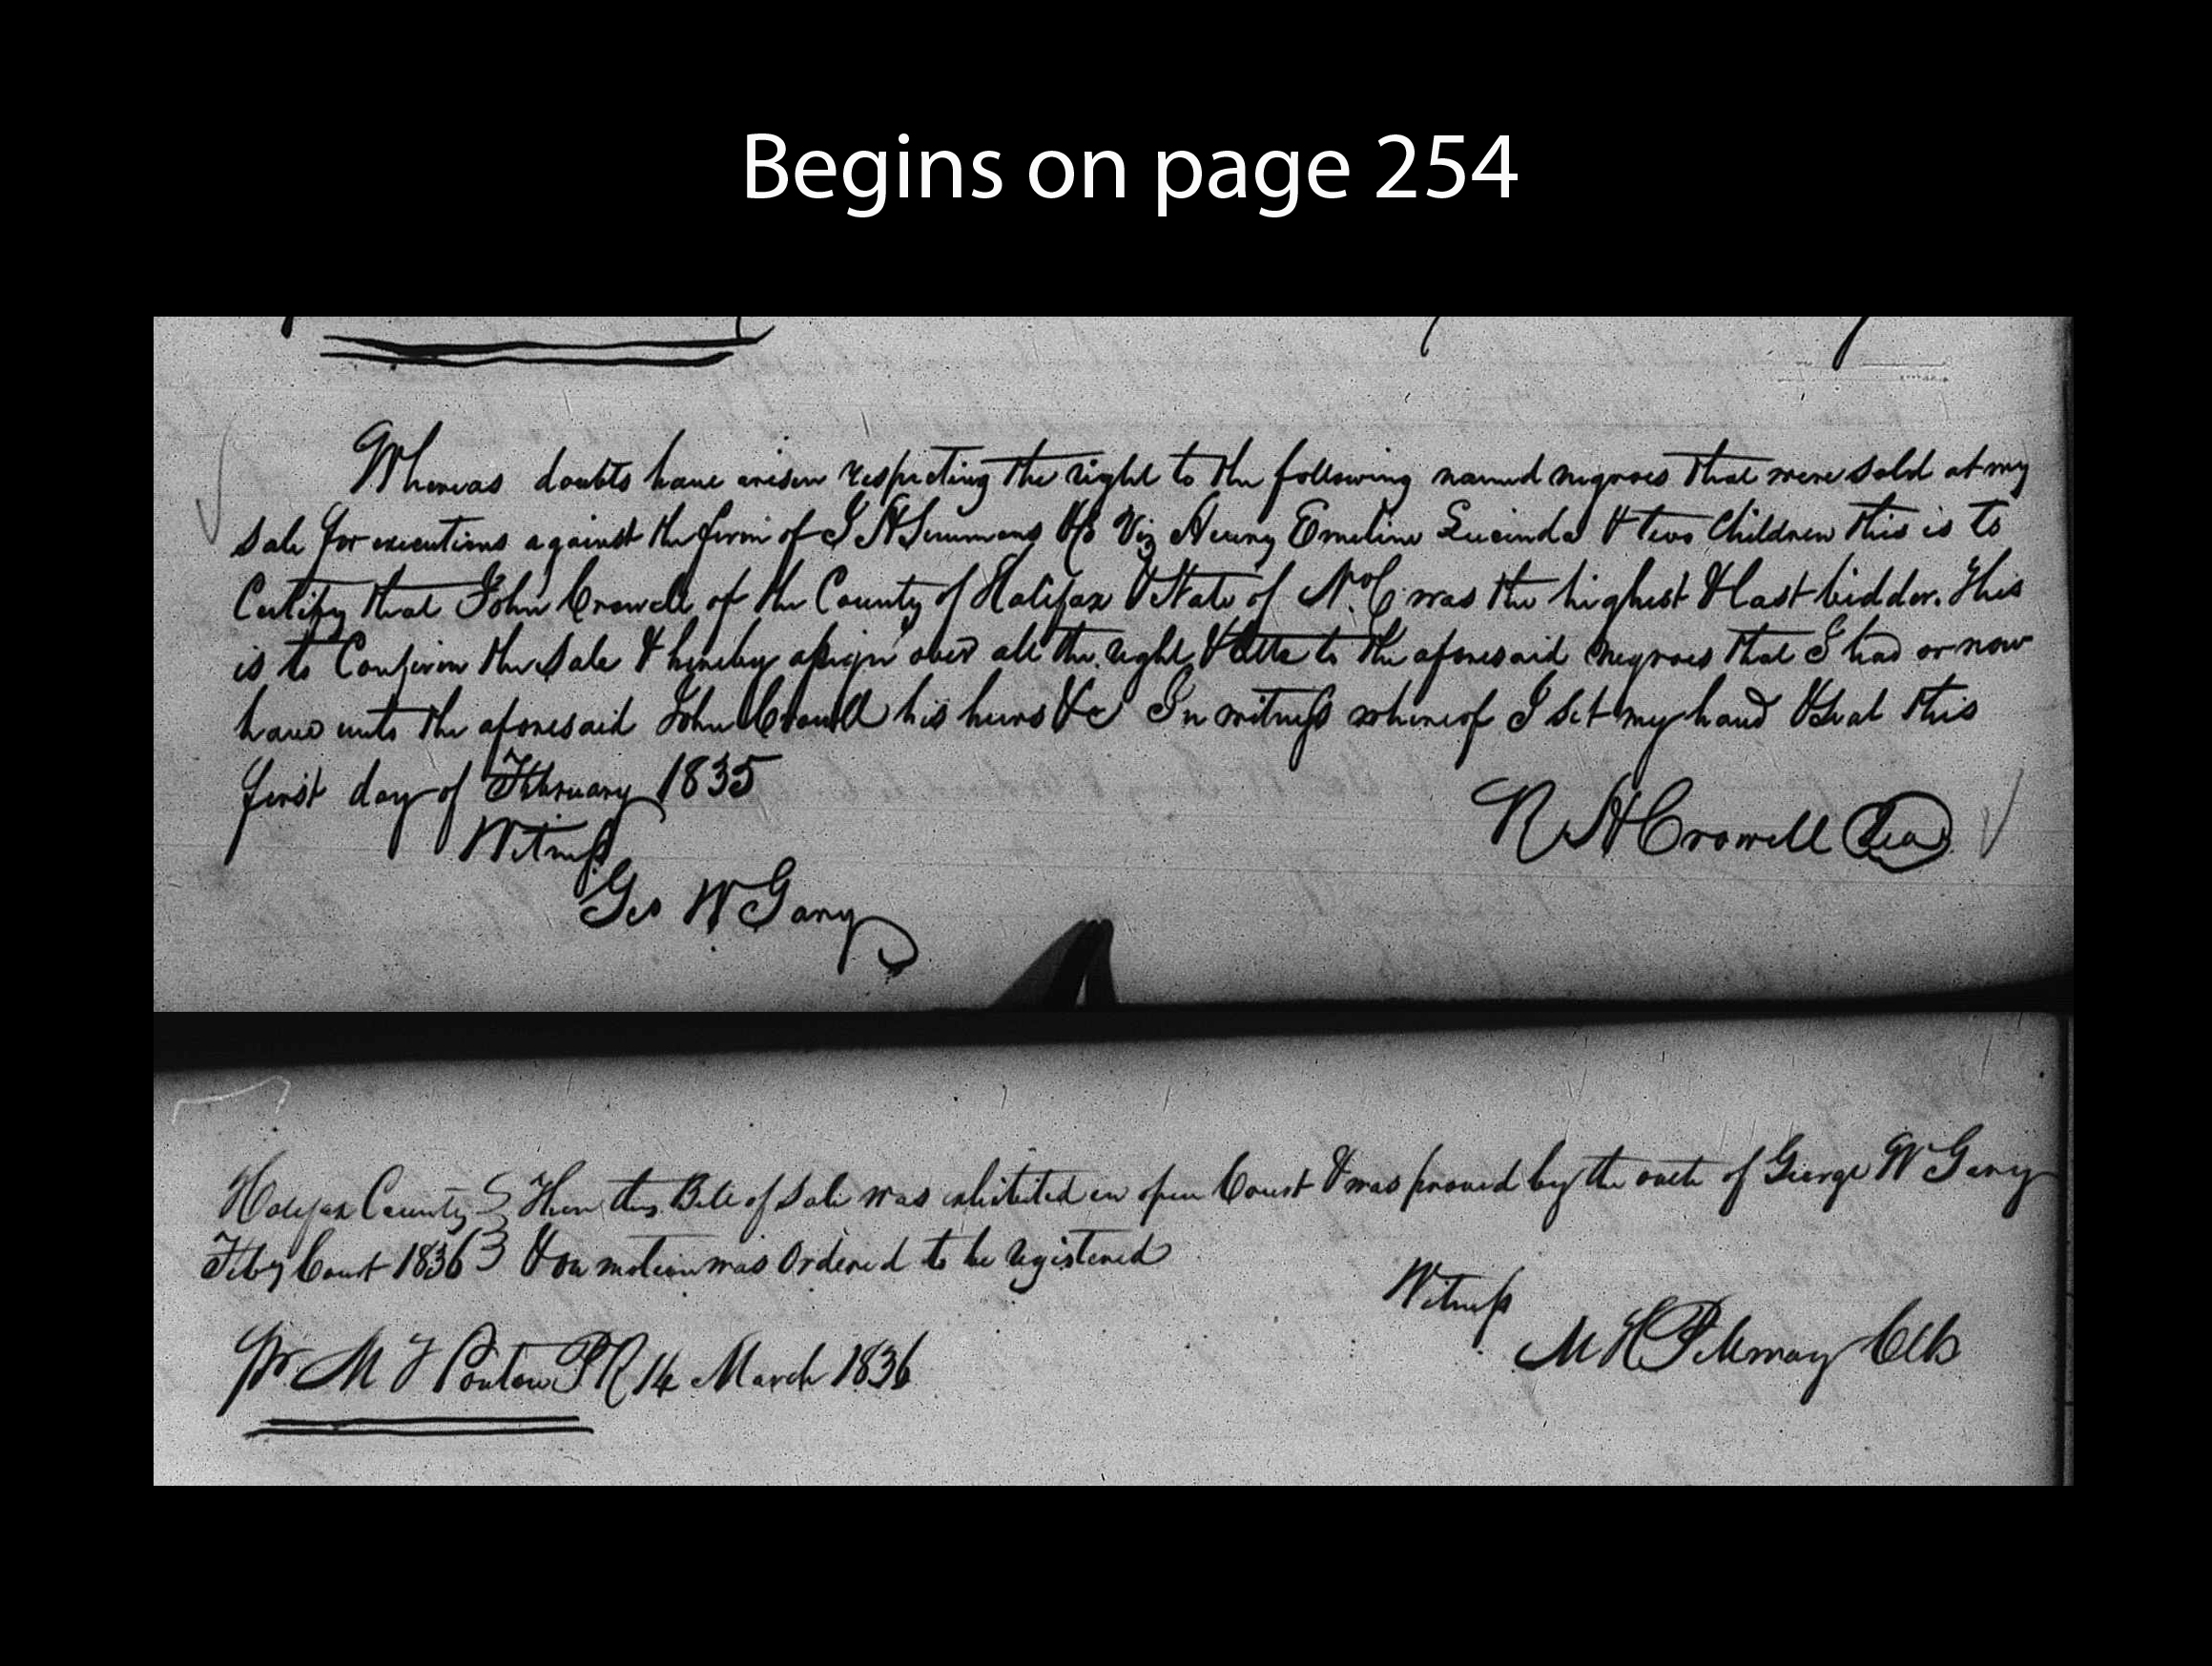 Begins on page 254
Whereas doubts have arisen respecting the right to the following named negroes that were sold at my
sale for executions against the firm of J H Simmons &Co Viz Henry Emeline Lucinda & two Children this is to
Certify that John Crowell of the County of Halifax & State of No. C. was the highest & last bidder. This
is to Confirm the Sale & hereby assign over all the right & title to the aforesaid negroes that I had or now
have unto the aforesaid John Crowell his heirs &c In witness whereof I set my hand & Seal this
first day of February 1835
N H Crowell Seal
Witness
Geo W Gary
Halifax County } Then this Bill of Sale was exhibited in open Court & was proved by the oath of George W Gary
Feby Court 1836 } & on motion was Ordered to be registered
Witness
M H Pettway Clk
Pr. M F Ponton P R 14 March 1836